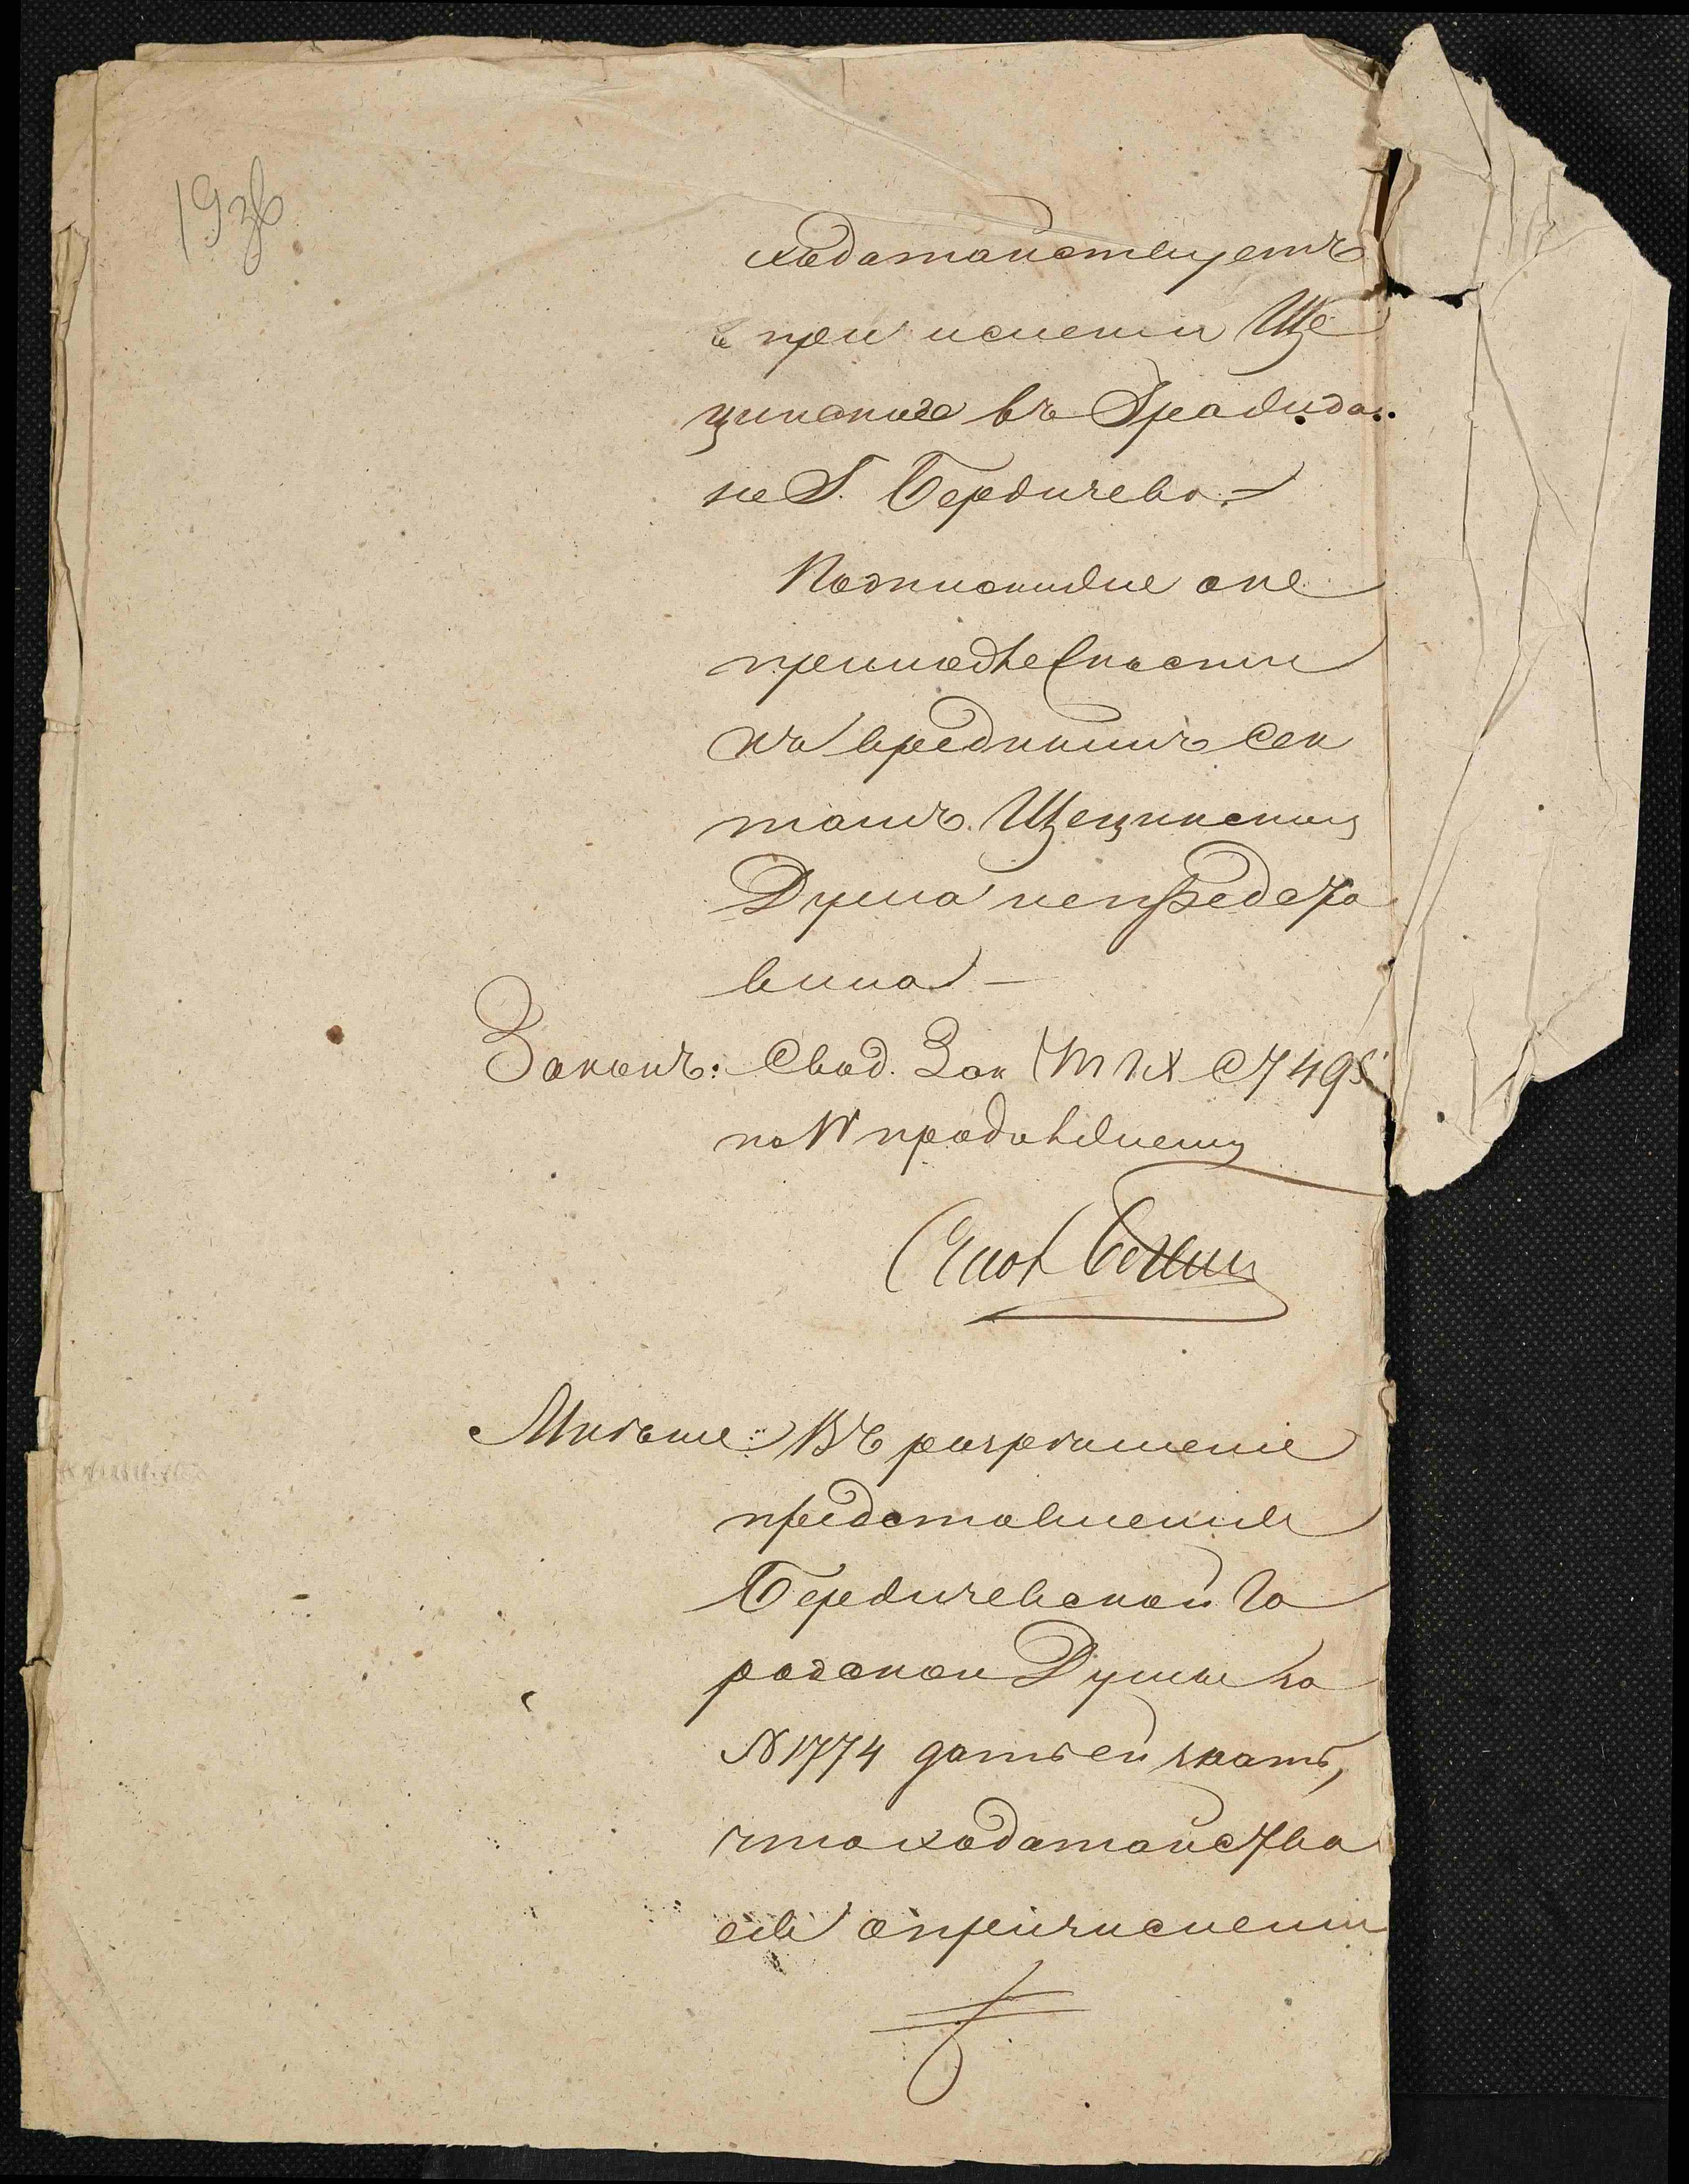 19 зв
ходатайствуетъ
о при численіи Ще
цинского въ Гражда
не Г. Бердичева. —
Подписки же о не
принадлежности
къ вреднымъ сек
тамъ Щецинскаго
Дума непредста
вила —
Законъ: Свод. Зак Т IX СТ 495
по IV продолженію
Мнѣніе: Въ разрѣшеніе
представленія
Бердичевской Го
родской Думы за
№ 1774 дать ей знать,
что ходатайства
ея о причисленіи